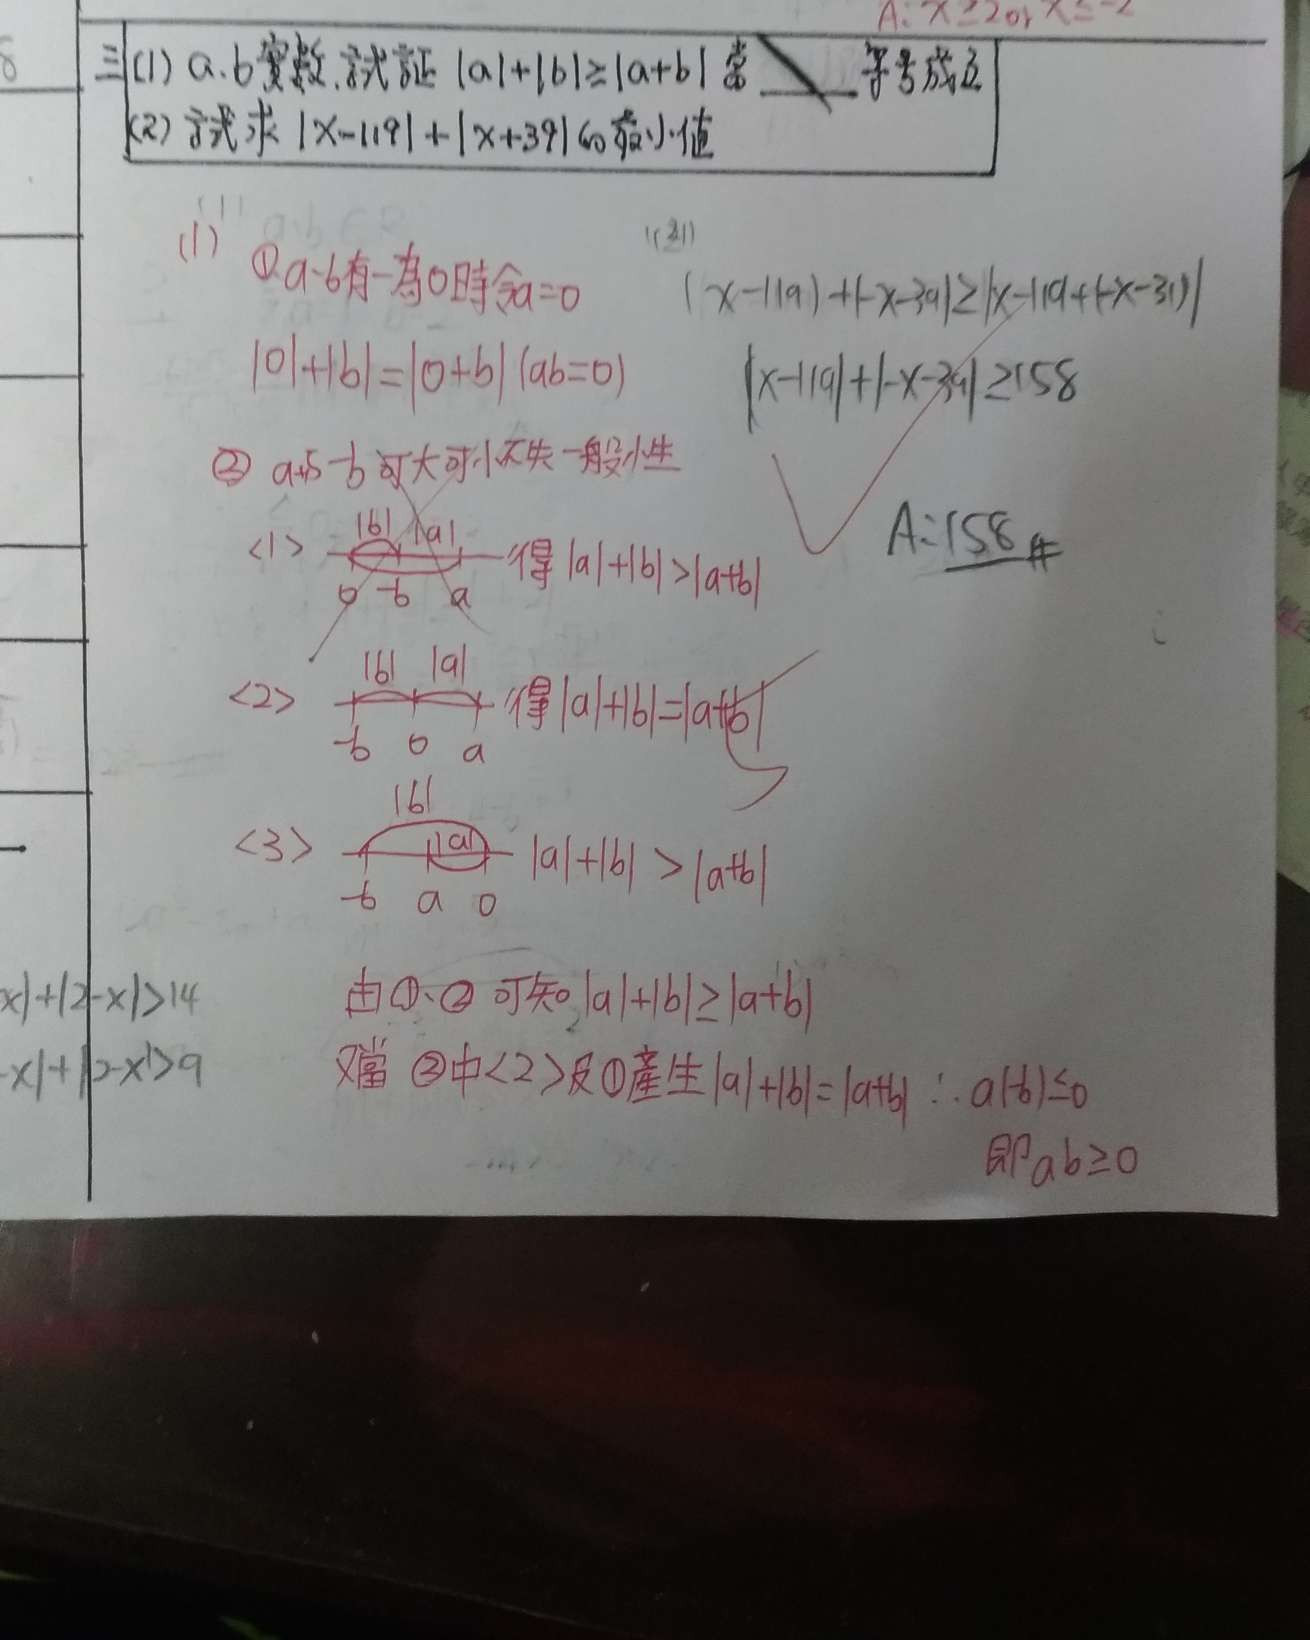 A: x≥2or x≤-2
三(1) a.b實數,試証 |a|+|b|≥|a+b| 當 ____ 等號成立
(2) 試求 |x-119|+|x+39|的最小值
(1)
①a.b有一為0時令a=0
|0|+|b|=|0+b| (ab=0)
② a與-b可大可小不失一般性
<1> |b| |a|
0 -b a
得|a|+|b|>|a+b|
<2> |b| |a|
-b 0 a
得|a|+|b|=|a+b|
<3> |b|
|a|
-b a 0
|a|+|b| > |a+b|
由①、②可知。|a|+|b|≥|a+b|
又當 ②中<2>及①產生|a|+|b|=|a+b| ∴a(-b)≤0
即ab≥0
(2)
(x-119)+|-x-39|≥|x-119+(-x-39)|
|x-119|+|-x-39|≥158
A:158#
x|+|2-x|>14
-x|+|2-x|>9